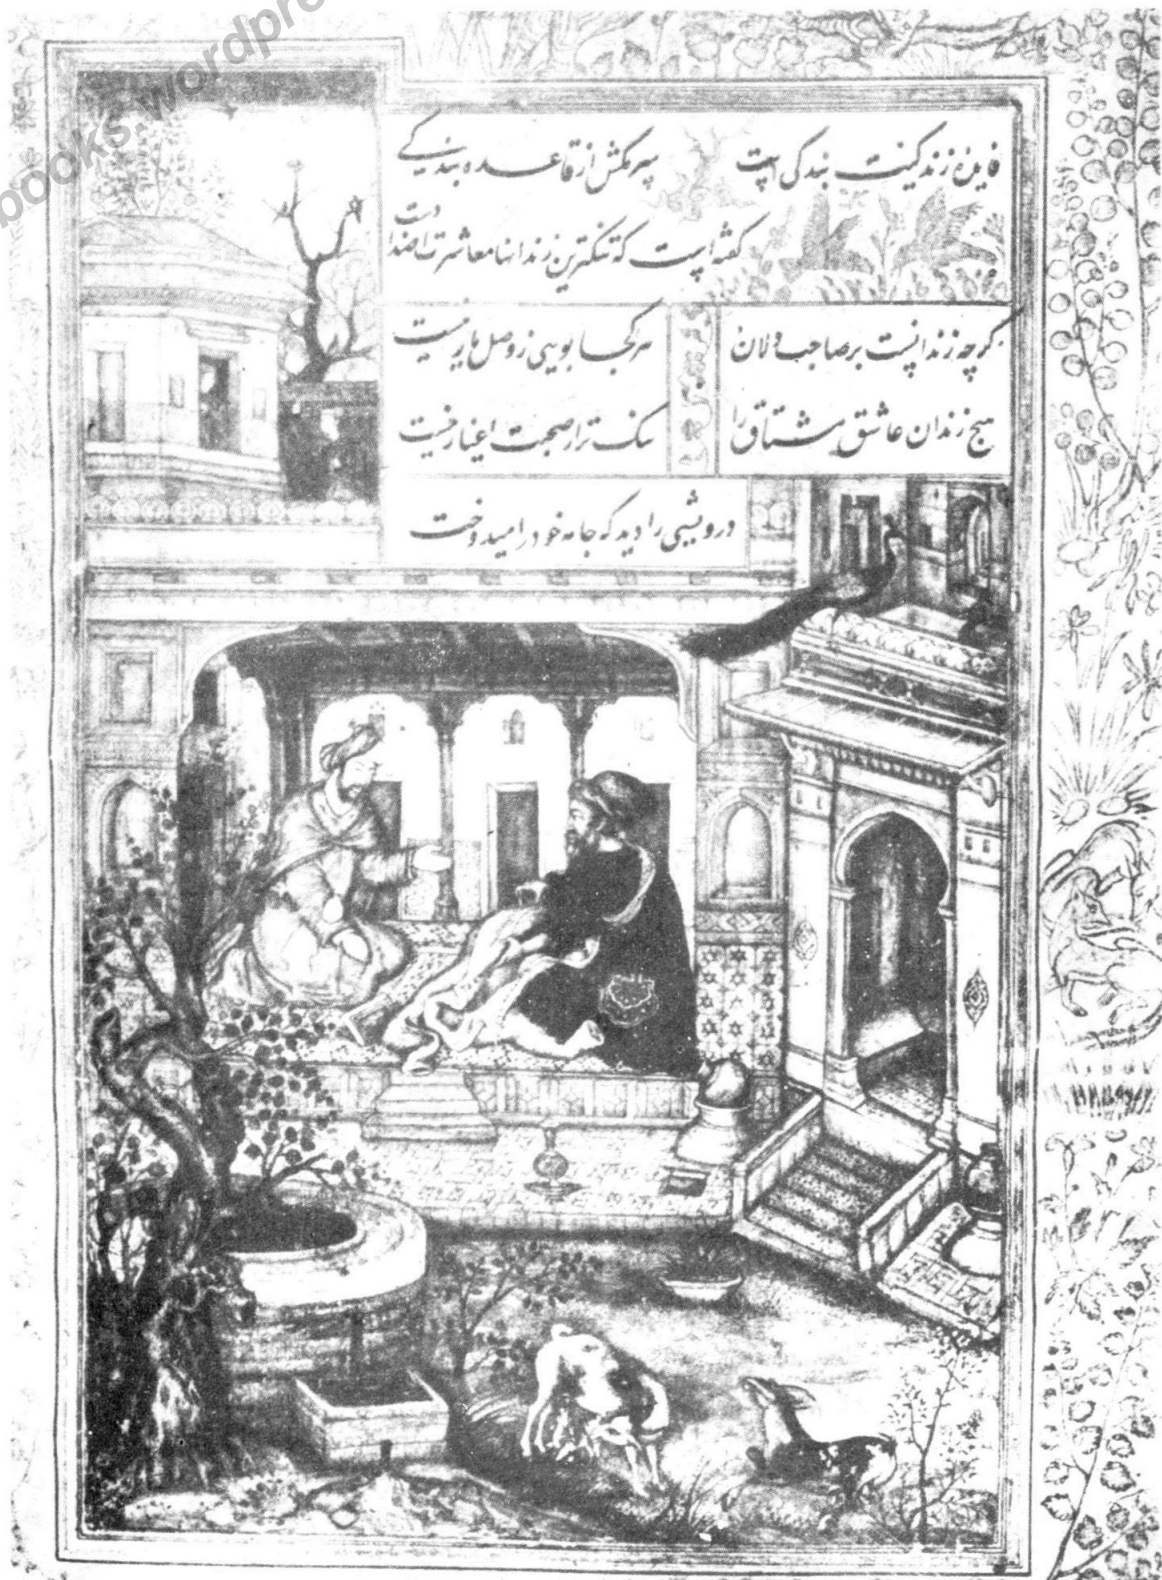 books.wordpre
فایده زندگیت بندگی است سر مکش از قاعده بندگی
گفته است که تنگترین زندانها معاشرت اضداد
دست
گرچه زندانیست بر صاحب دلان هر کجا بویی ز وصل یار نیست
هیچ زندان عاشق مشتاق را تنگ تر از صحبت اغیار نیست
درویشی را دید که جامه خود را میدوخت